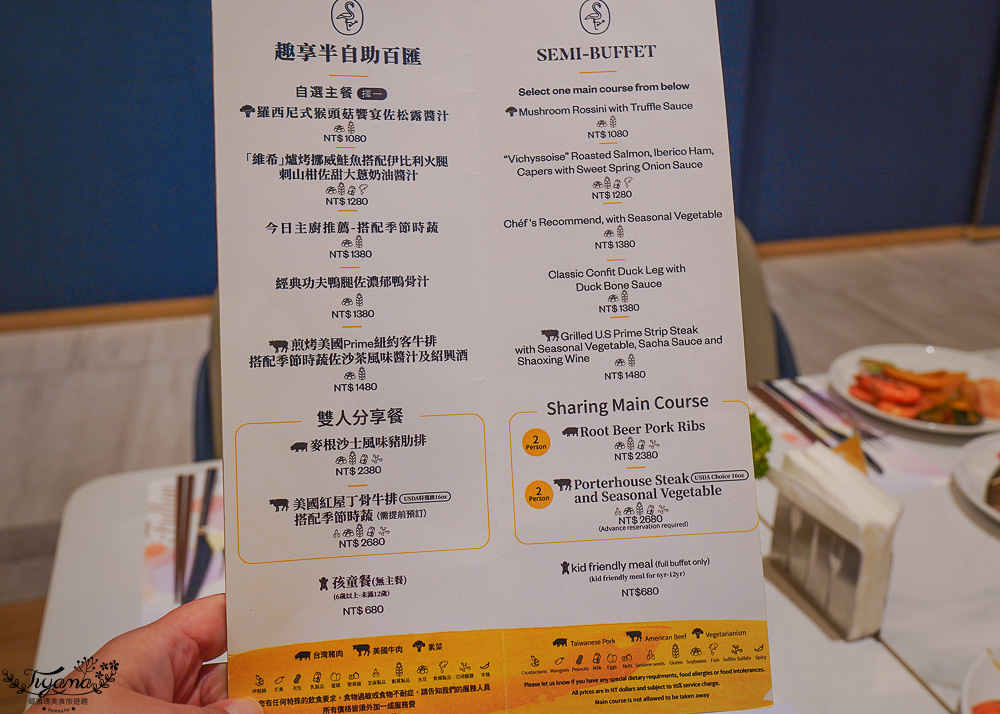 趣享半自助百匯
自選主餐 擇一
羅西尼式猴頭菇饗宴佐松露醬汁
NT$1080
「維希」爐烤挪威鮭魚搭配伊比利火腿
刺山柑佐甜大蔥奶油醬汁
NT$1280
今日主廚推薦-搭配季節時蔬
NT$1380
經典功夫鴨腿佐濃郁鴨骨汁
NT$1380
煎烤美國Prime紐約客牛排
搭配季節時蔬佐沙茶風味醬汁及紹興酒
NT$1480
雙人分享餐
麥根沙士風味豬肋排
NT$2380
美國紅屋丁骨牛排 USDA特選級16oz
搭配季節時蔬 (需提前預訂)
NT$2680
孩童餐(無主餐)
(6歲以上-未滿12歲)
NT$680
台灣豬肉 美國牛肉 素菜
甲殼類 芒果 花生 乳製品 蛋類 堅果類 芝麻類 麩質類 大豆 魚類製品 亞硫酸鹽 辛辣
您有任何特殊的飲食要求，食物過敏或食物不耐症，請告知我們的服務人員
所有價格皆須外加一成服務費
SEMI-BUFFET
Select one main course from below
Mushroom Rossini with Truffle Sauce
NT$1080
“Vichyssoise” Roasted Salmon, Iberico Ham,
Capers with Sweet Spring Onion Sauce
NT$1280
Chéf's Recommend, with Seasonal Vegetable
NT$1380
Classic Confit Duck Leg with
Duck Bone Sauce
NT$1380
Grilled U.S Prime Strip Steak
with Seasonal Vegetable, Sacha Sauce and
Shaoxing Wine
NT$1480
Sharing Main Course
2 Person Root Beer Pork Ribs
NT$2380
2 Person Porterhouse Steak USDA Choice 16oz
and Seasonal Vegetable
NT$2680
(Advance reservation required)
kid friendly meal (full buffet only)
(kid friendly meal for 6yr-12yr)
NT$680
Taiwanese Pork American Beef Vegetarianism
Crustaceans Mangoes Peanuts Milk Eggs Nuts Sesame seeds Gluten Soybeans Fish Sulfite Sulfate Spicy
Please let us know if you have any special dietary requirements, food allergies or food intolerances.
All prices are in NT dollars and subject to 10% service charge.
Main course is not allowed to be taken away
Tiyama